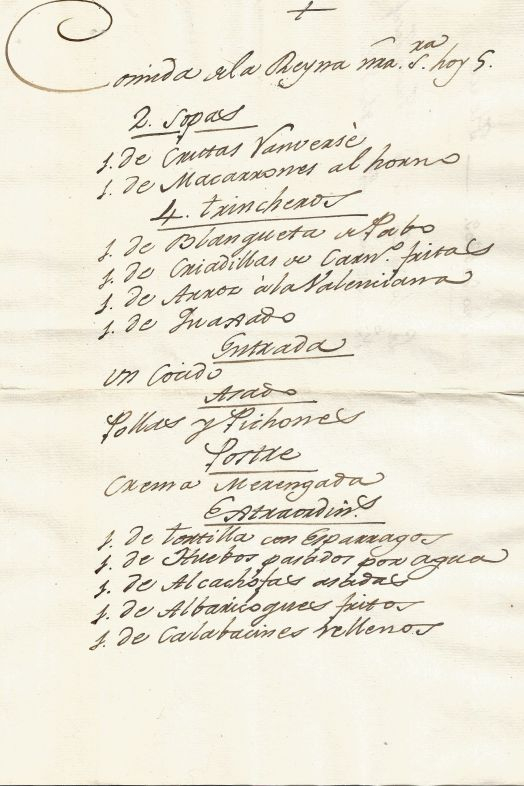 Comida de la Reyna nra. S.ra hoy 5.
2. Sopas
1. de Crutas Vanversè
1. de Macarrones al horno
4. trincheros
1. de Blangueta de Pabo
1. de Criadillas de Carn.o fritas
1. de Arroz à la Valenciana
1. de Guisado
Entrada
Un Cocido
Asado
Pollas y Pichones
Postre
Crema Merengada
Extraordin.s
1. de tortilla con Esparragos
1. de Huebos pasados por agua
1. de Alcachofas asadas
1. de Albaricoques fritos
1. de Calabacines rellenos